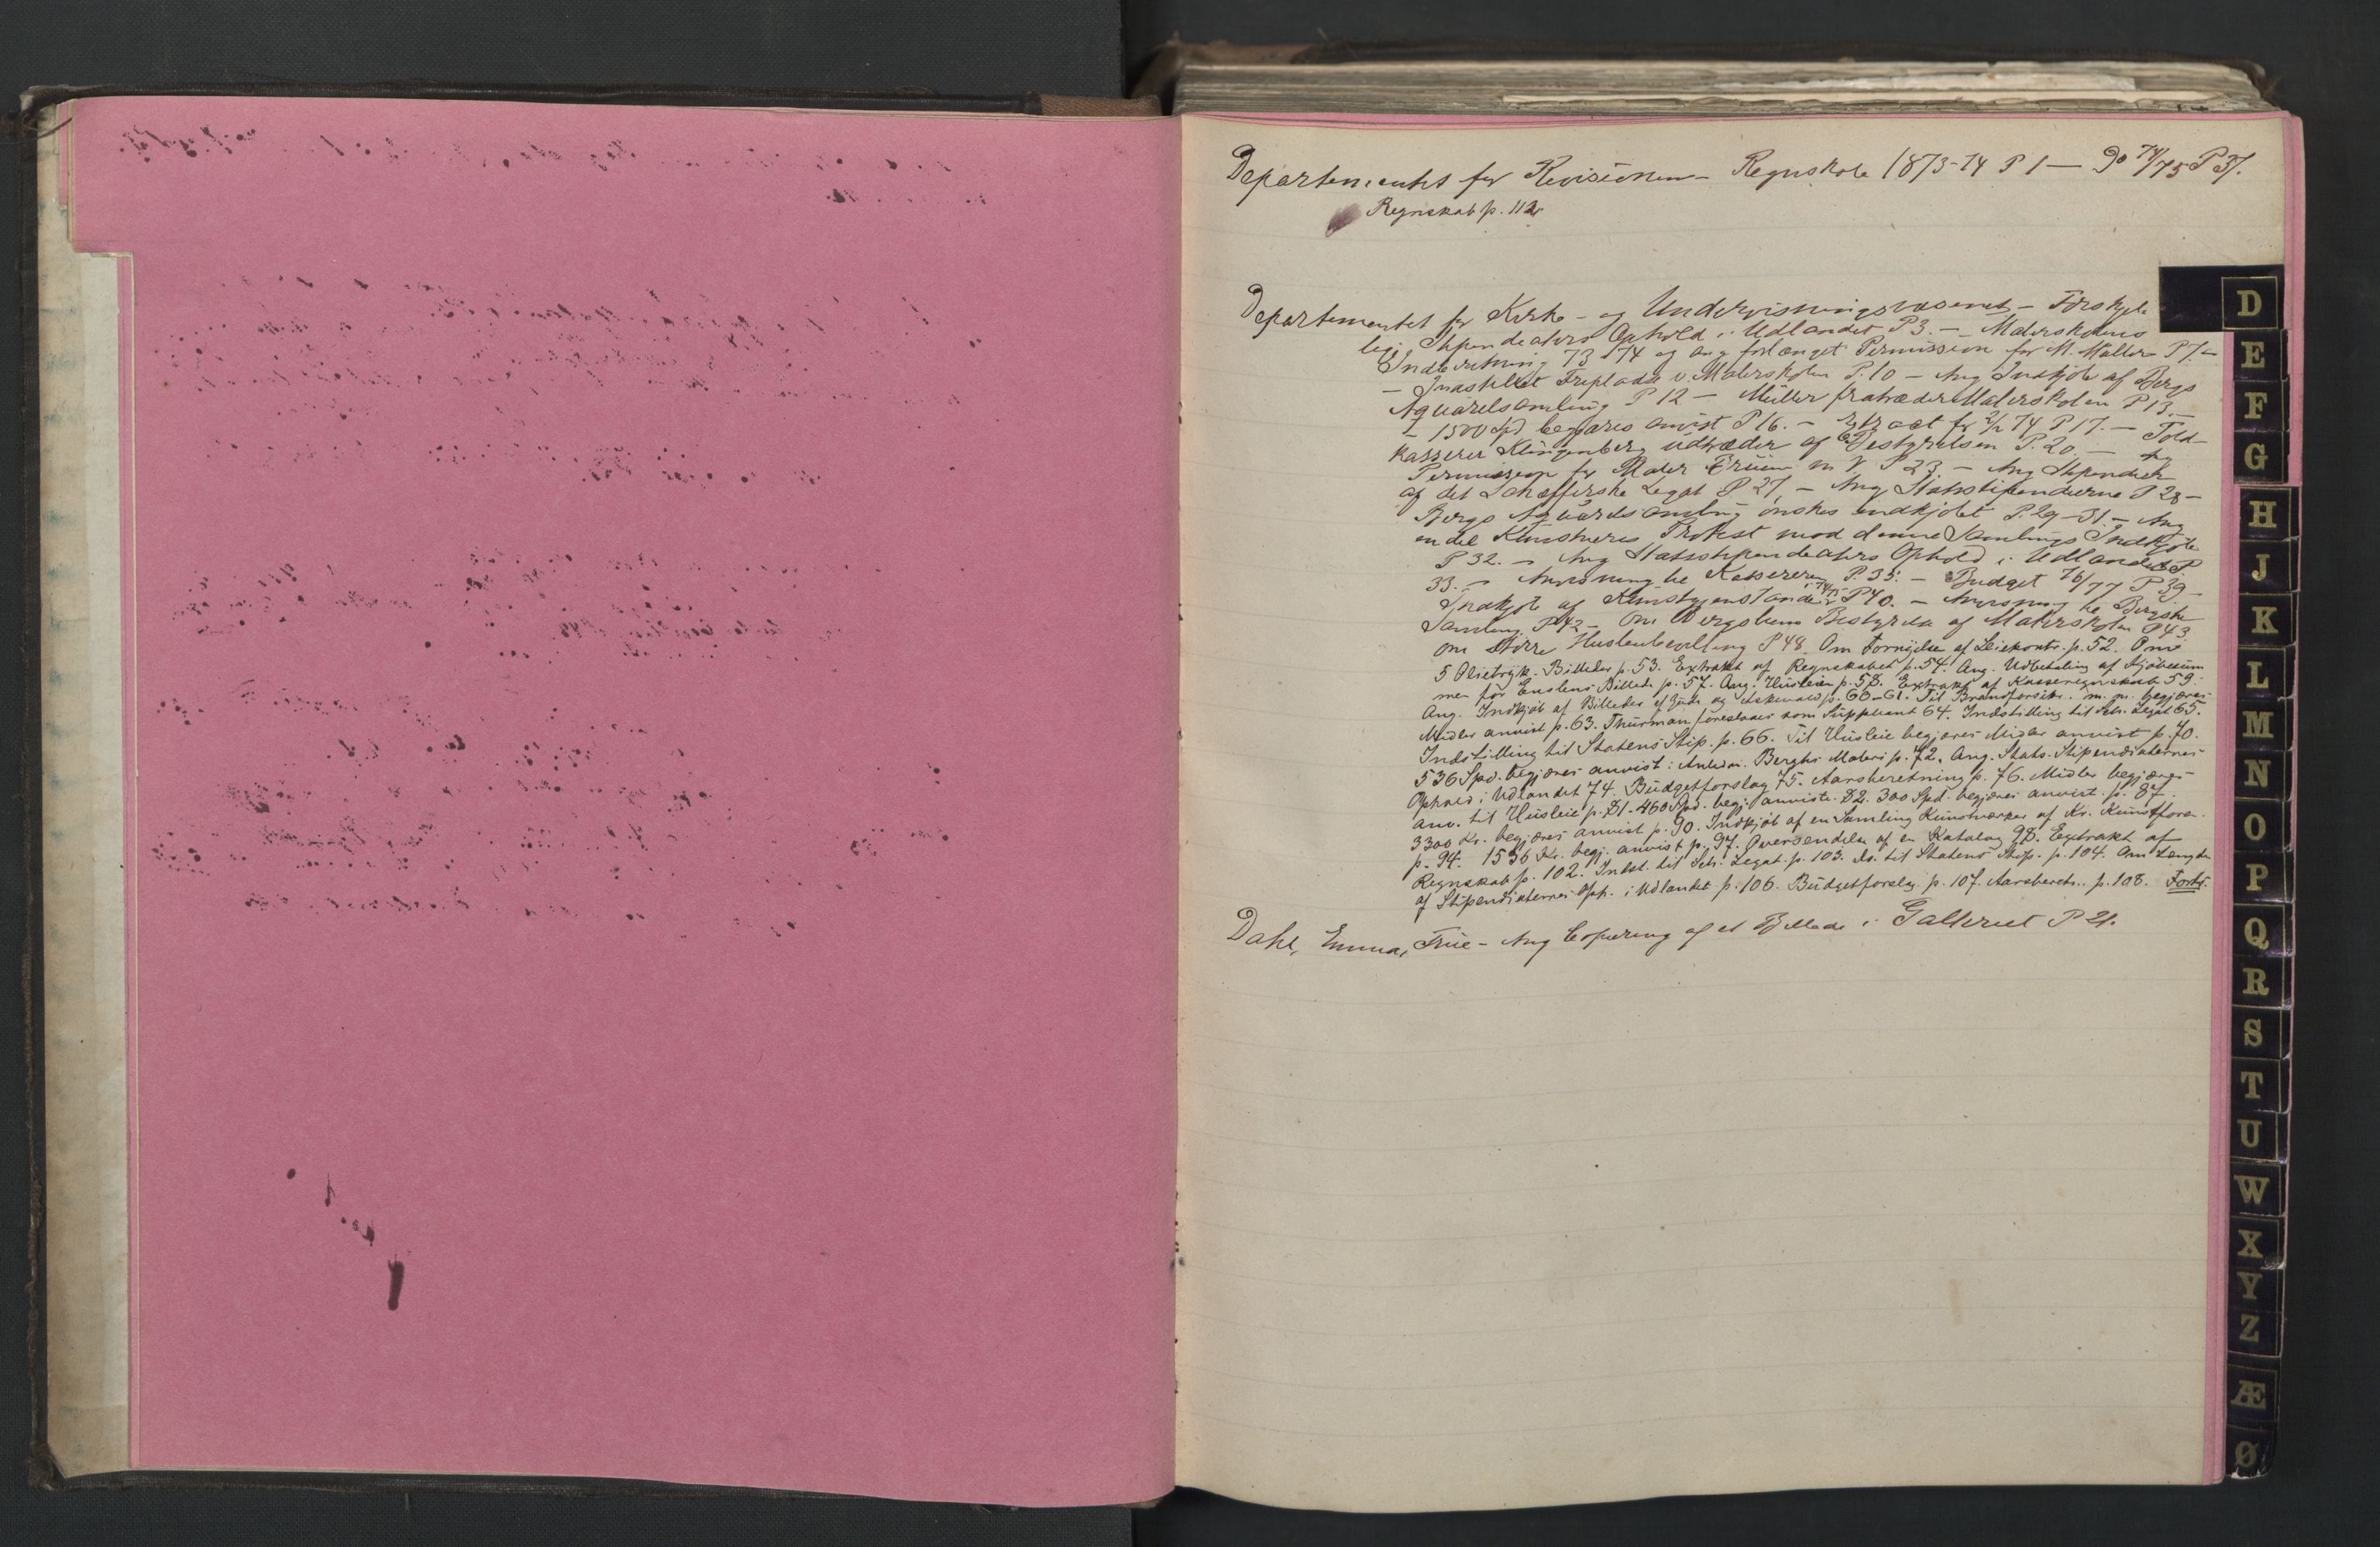 Departementet for Revisionen – Regnskab 1873-74 P 1 – Do 74/75 P 37.
Regnskab p. 112
Departementet for Kirke- og Undervisningsvæsenet – Forskjel-
lige Stipendiaters Ophold i Udlandet P 3. – Malerskolens
Indberetning 73-74 og ang forlænget Permission for M. Müller P 7. –
– Indstillet Friplads v. Malerskolen P. 10 – Ang Indkjøb af Bergs
Aquarelsamling P 12 – Müller fratræder Malerskolen P 13. –
– 1500 Spd begjæres anvist P 16. – Extract for 2/2 74 P 17. – Told-
kasserer Klingenberg udtræder af Bestyrelsen P. 20. – Ang
Permission for Maler Bruun P 23. – Ang Stipendiet
af det Schæfferske Legat P 27, – Ang Statsstipendierne P 28 –
Bergs Aquarelsamling ønskes indkjøbt P. 29-31. – Ang
en del Kunstneres Protest mod denne Samlings Indkjøb
P 32. – Ang Statsstipendiaters Ophold i Udlandet P
33. – Anvisning til Kassereren P. 35. – Budget 76/77 P 39 –
Indkjøb af Kunstgjenstande i 74/75 P 40. – Anvisning til Bergske
Samling P 42 – Om Bergsliens Bestyrelse af Malerskolen P 43
om større Husleiebevilling P 48. Om Fornyelse af Leiekontr. p. 52. Om
5 Olietryk-Billeder p. 53. Extrakt af Regnskabet p. 54. Ang. Udbetaling af Kjøbesum
men for Enslens Billed. p. 57. Ang. Husleien p. 58. Extrakt af Kasseregnskab 59.
Ang. Indkjøb af Billeder af Gude og Askevold p. 60-61. Til Brandforsikr. m. m. begjæres
Midler anvist p. 63. Thurman foreslaaes som Suppleant 64. Indstilling til Sch. Legat 65.
Indstilling til Statens Stip. p. 66. Til Husleie begjæres Midler anvist p. 70.
536 Spd. begjæres anvist i Anledn. Berghs Maleri p. 72. Ang. Stats-Stipendiaternes
Ophold i Udlandet 74. Budgetforslag 75. Aarsberetning p. 76. Midler begjæres
anv. til Husleie p. 81. 460 Spd. begj. anviste. 82. 300 Spd. begjæres anvist. p. 87.
3300 Kr. begjæres anvist p. 90. Indkjøb af en Samling Kunstværker af Kr. Kunstforen.
p. 94. 1536 Kr. begj. anvist p. 97. Oversendelse af en Katalog 98. Extrakt af
Regnskab p. 102. Indst. til Sch. Legat. p. 103. do. til Statens Stip. p. 104. Om Længden
af Stipendiaternes Oph. i Udlandet p. 106. Budgetforslag p. 107. Aarsberetn. p. 108. Forts.
Dahl, Emma, Frue – Ang Copiering af et Billede i Galleriet P 21.
D
E
F
G
H
J
K
L
M
N
O
P
Q
R
S
T
U
W
X
Y
Z
Æ
Ø